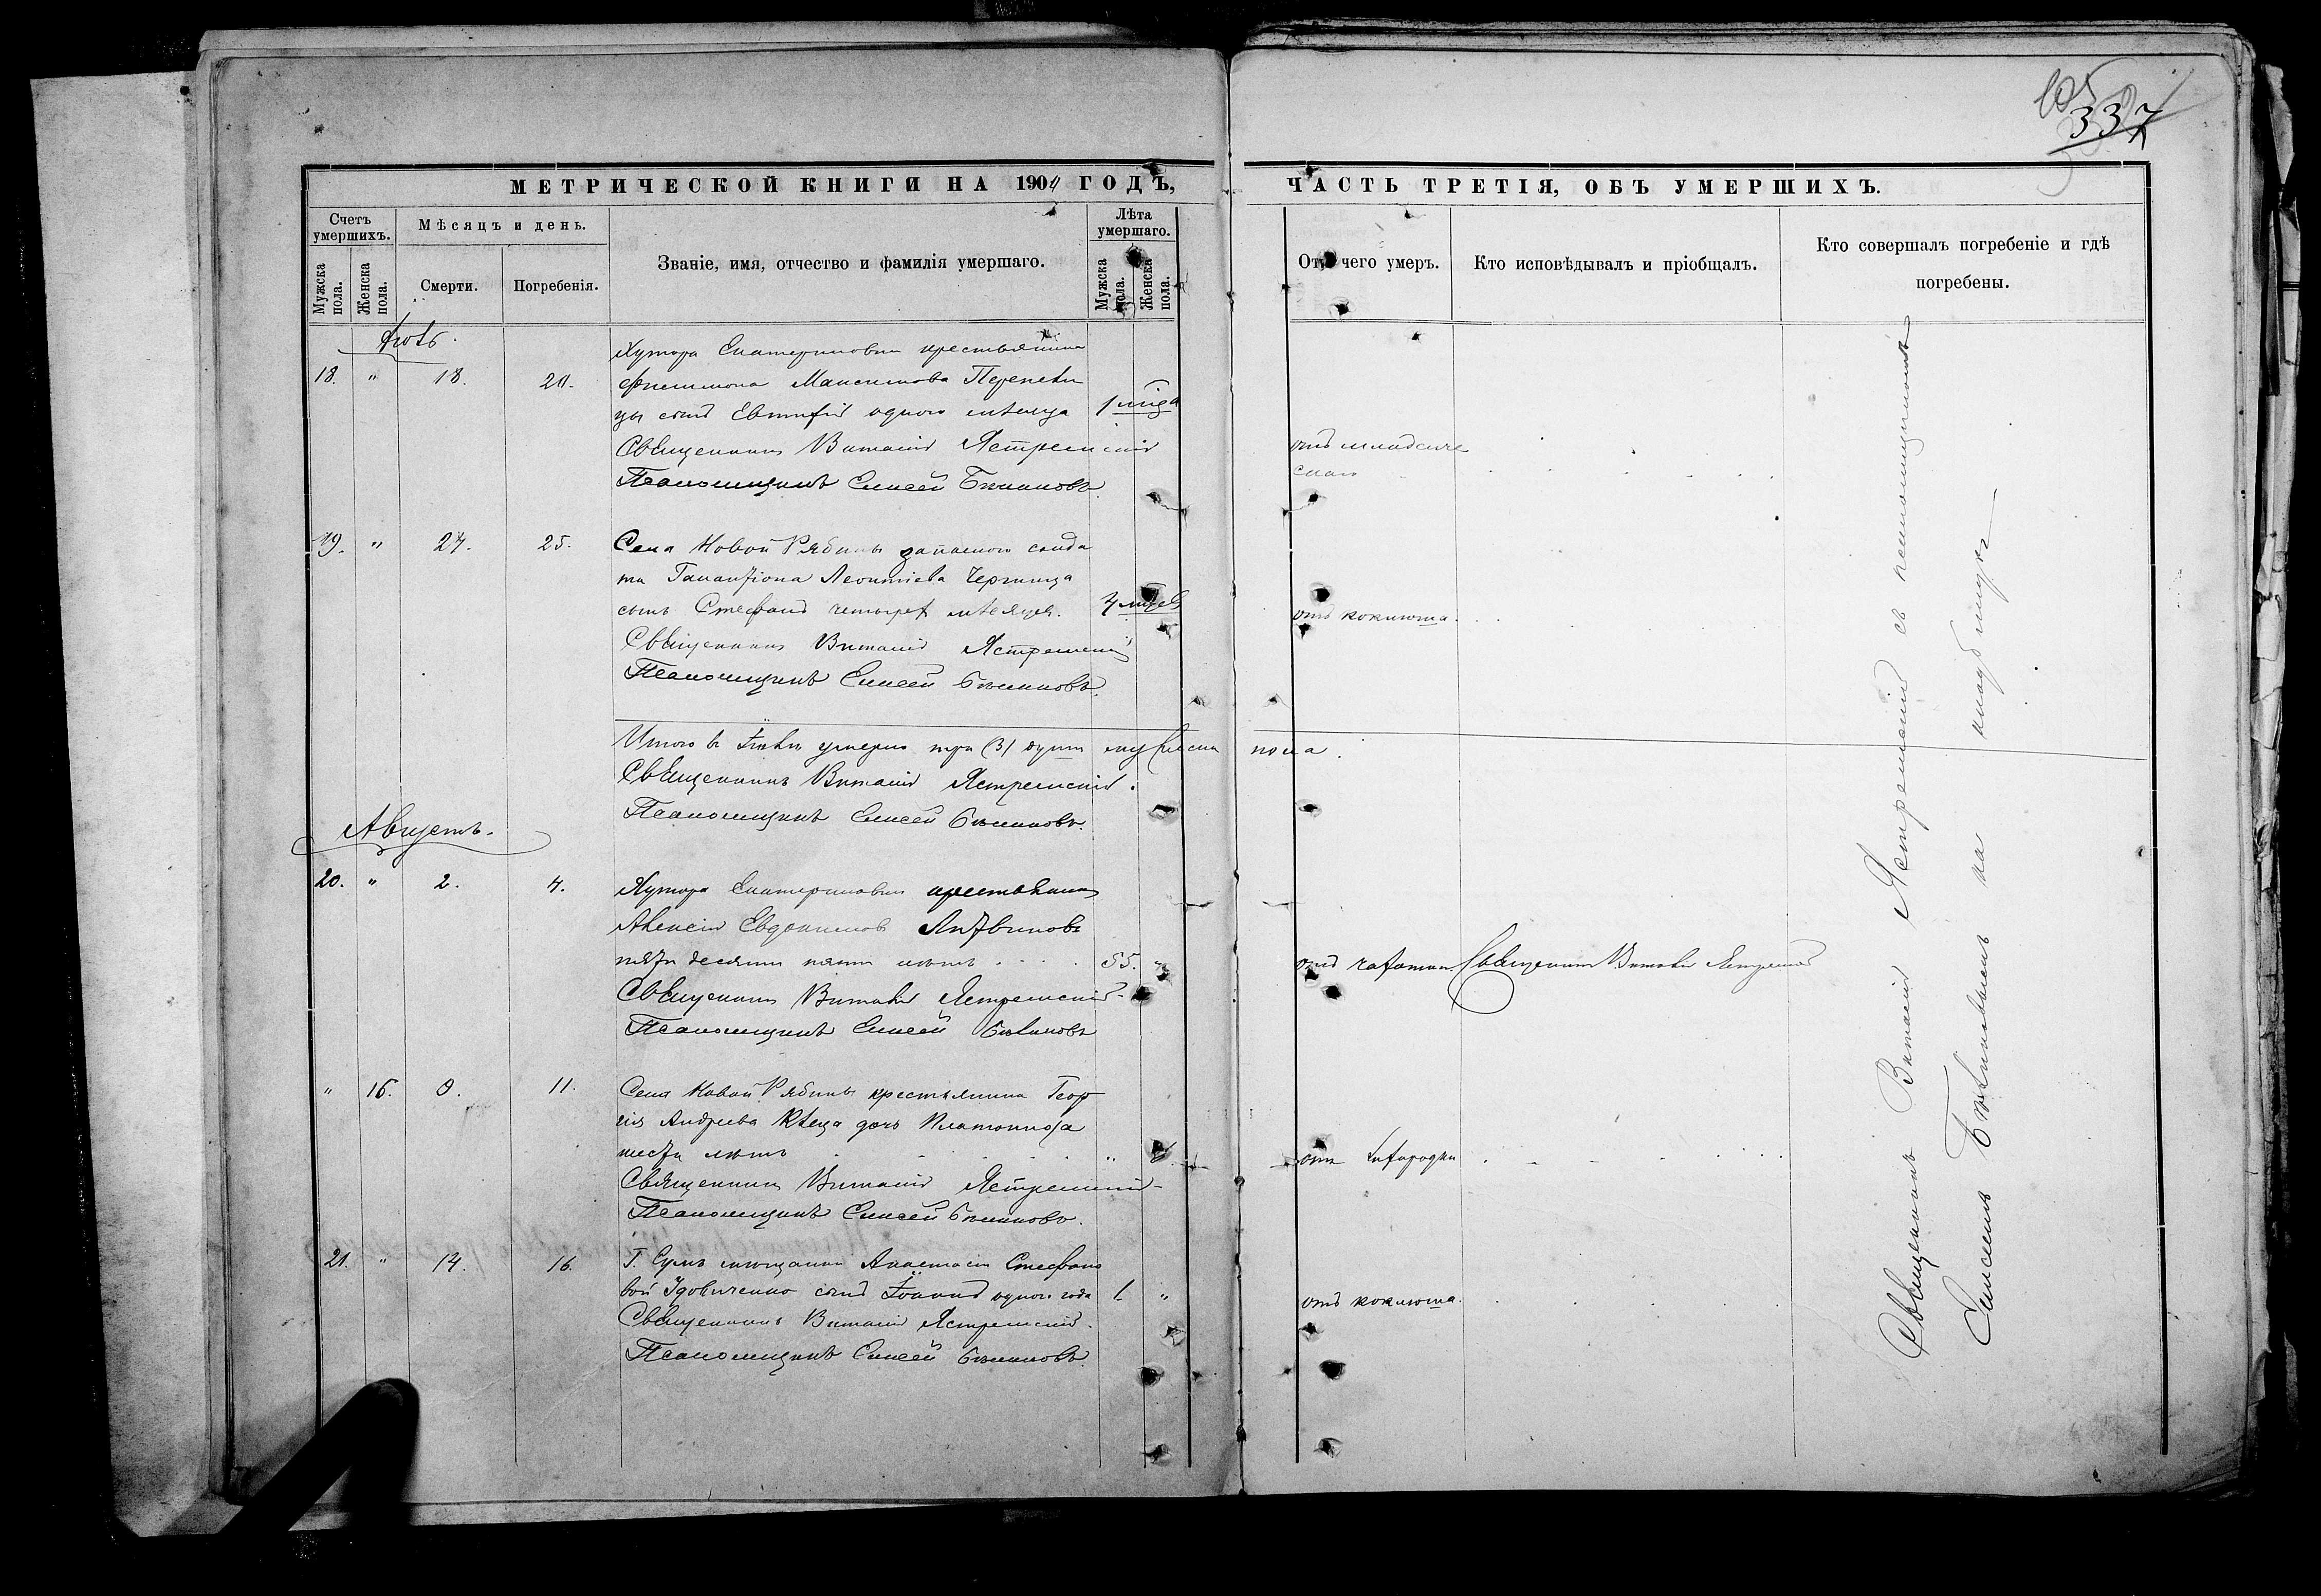 337
МЕТРИЧЕСКОЙ КНИГИ НА 1904 ГОДЪ,
ЧАСТЬ ТРЕТІЯ, ОБЪ УМЕРШИХЪ.
Счетъ умершихъ.
Мѣсяцъ и день.
Званіе, имя, отчество и фамилія умершаго.
Лѣта умершаго.
Мужска пола.
Женска пола.
Смерти.
Погребенія.
Мужска пола.
Женска пола.
Отъ чего умеръ.
Кто исповѣдывалъ и пріобщалъ.
Кто совершалъ погребеніе и гдѣ
погребены.
Хутора Екатериновки крестьянина
18. " 18. 20. Филимона Максимова
сынъ Евтихій одного мѣсяца
Священникъ Виталій Ястремскій
Псаломщикъ Елисей
отъ младенче
19. " 24. 25. Села Новой Рябины запаснаго солда
та Галактіона Леонтіева
сынъ Стефанъ четырехъ мѣсяцев.
отъ коклюша.
Священникъ Виталій Ястремскій
Псаломщикъ Елисей
Итого въ Іюлѣ умерло три (3) души мужска пола.
Священникъ Виталій Ястремскій.
Псаломщикъ Елисей
Августъ.
20. " 2. 4. Хутора Екатериновки крестьянинъ
Алексій Евдокимовъ Литвиновъ
пятидесяти пяти лѣтъ 55. "
отъ чахотки. Священникъ Виталій Ястремскій
Священникъ Виталій Ястремскій
Псаломщикъ Елисей
" 16. 9. 11. Села Новой Рябины крестьянина Геор
гія Андреева дочь
шести лѣтъ
отъ лихорадки
Священникъ Виталій Ястремскій
Псаломщикъ Елисей
21. " 14. 16. Г. Сумъ мѣщанки Анастасіи Стефано
вой Удовиченко сынъ Іоаннъ одного года 1. "
отъ коклюша.
Священникъ Виталій Ястремскій.
Псаломщикъ Елисей
Священникъ Виталій Ястремскій съ псаломщикомъ
Елисеемъ на кладбищѣ